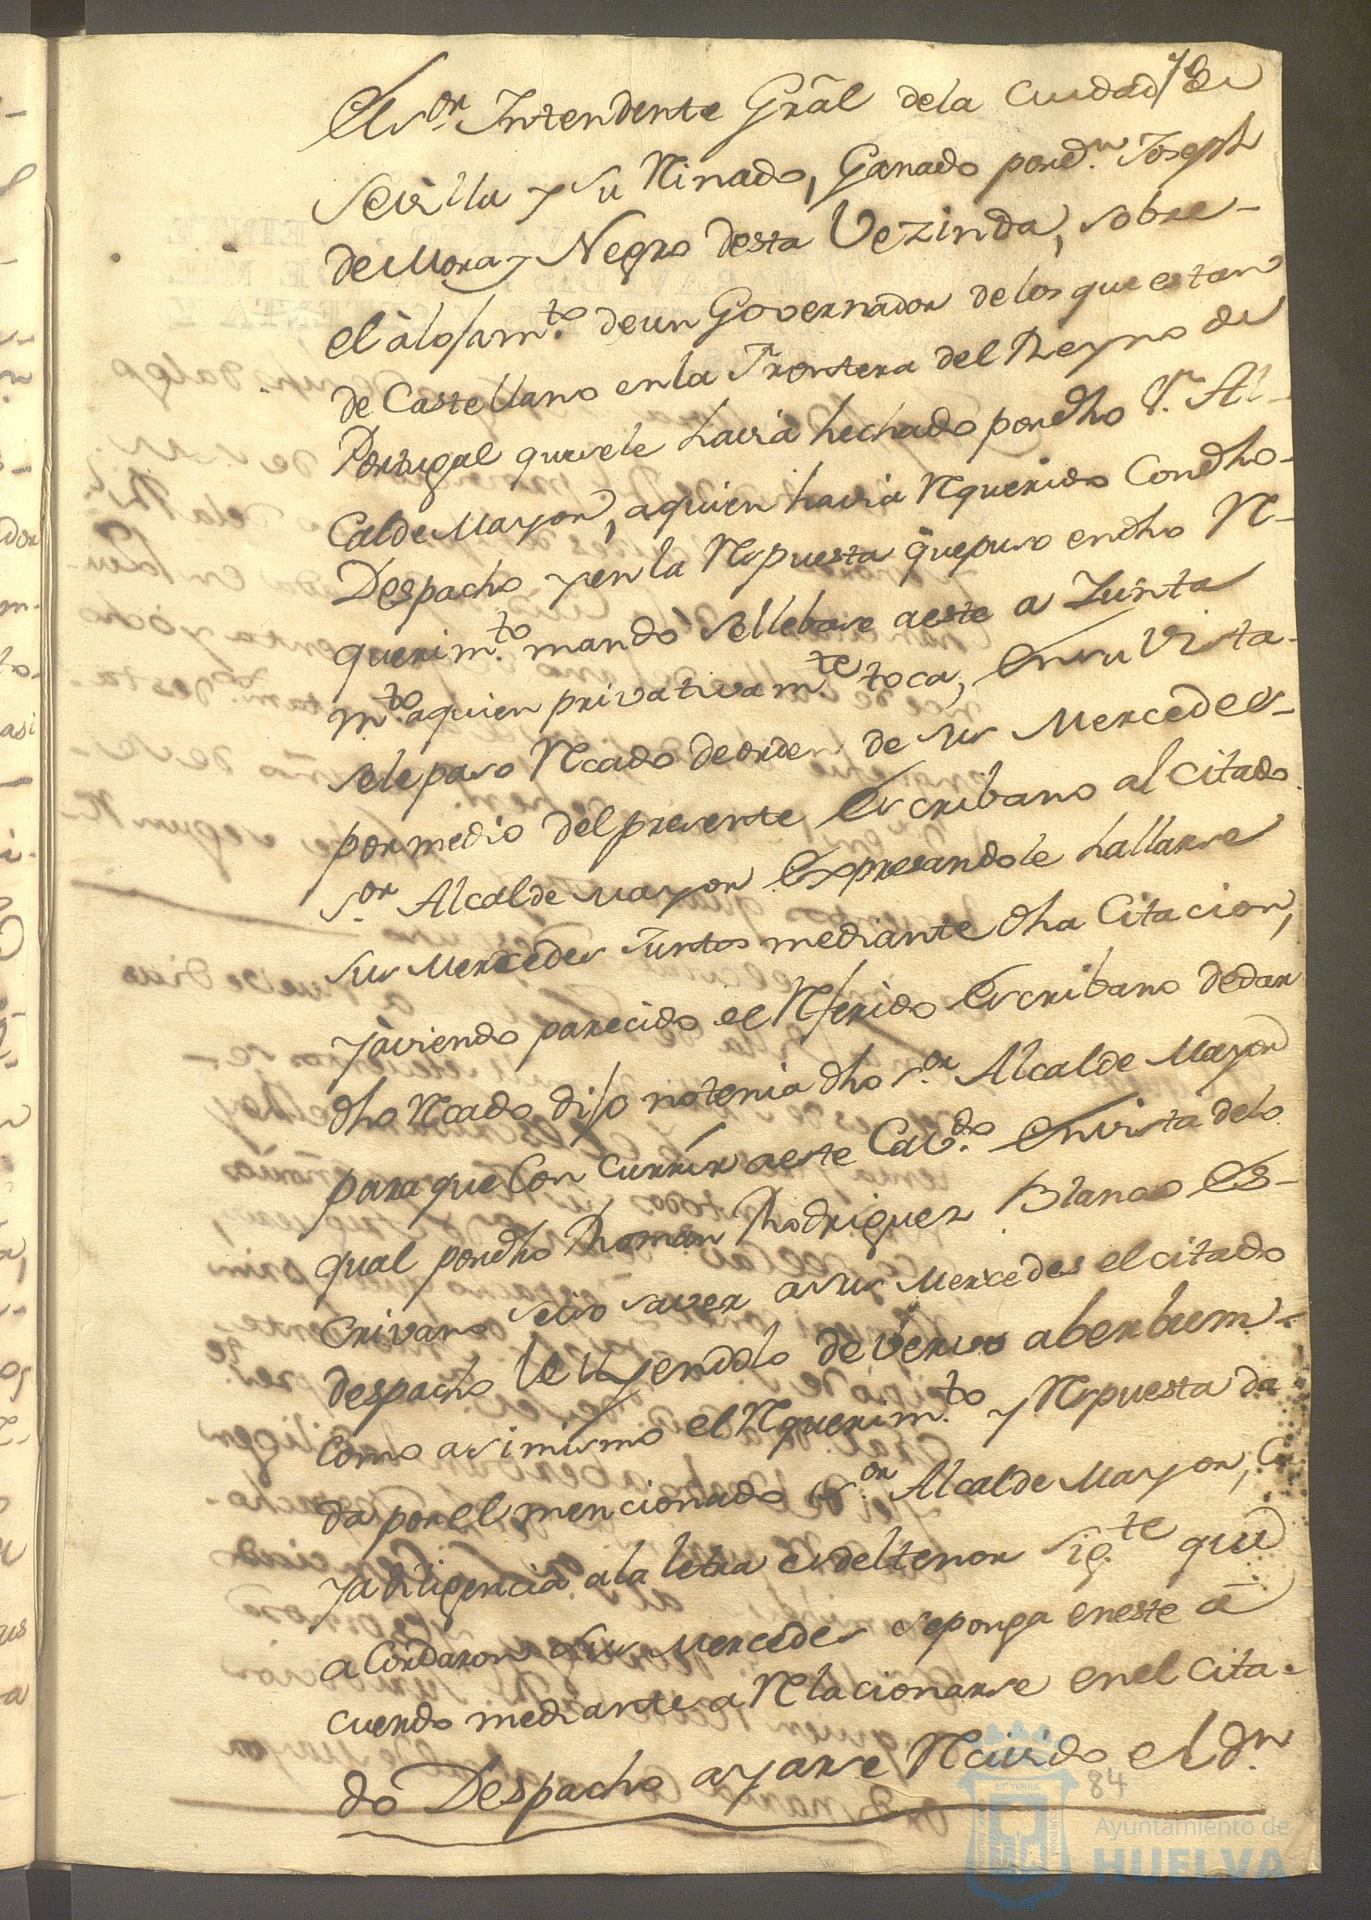 El s.or Intendente Grâl dela Ciudad de
Sevilla y su Rinado, Ganado por d.n Joseph
de Mora y Negro desta Vezinda, sobre
el alojam.to de un Governador delos que estan
de Castellano enla Frontera del Reyno de
Portugal que sele havia hechado por dho S.r Al-
Calde Mayor, aquien havia Rquerido Con dho
Despacho, yenla Rspuesta que puso endho R-
querim.to mandò sellebase aeste a Junta
m.to aquien privativam.te toca, Ensu Vista-
sele paso Rcado deorden de sus Mercedes-
por medio del presente Escribano al citado
s.or Alcalde Mayor Expresandole hallarse
sus Mercedes Juntos mediante dha Citacion,
yaviendo parecido el Rferido Escribano dedar
dho Rcado dijo notenia dho s.or Alcalde Mayor
para que Con Currir aeste Cav.do Envista delo
qual por dho Roman Rodriguez Blanco Es-
Crivano se iso saver asus Mercedes el citado
despacho leyendolo de vervo aberbum-
Como asimismo el Rquerim.to y Rspuesta da
da porel mencionado s.or Alcalde Mayor, Cu
ya diligencia ala letra es deltenor sig.te que
aCordaron sus Mercedes seponga eneste a
cuerdo mediante a Rlacionarse enel cita-
do Despacho ayarse Rcivido el d.n
84
Ayuntamiento de
HUELVA